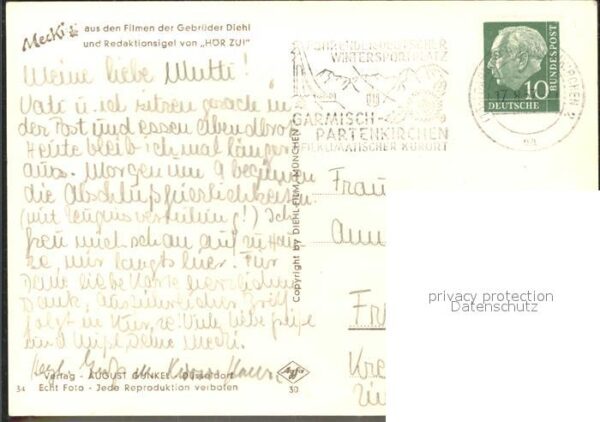 Mecki aus den Filmen der Gebrüder Diehl
und Redaktionsigel von „HÖR ZU!"
Meine liebe Mutti!
Vati u. ich sitzen gerade in
der Post und essen Abendbrot.
Heute bleib ich mal länger
aus. Morgen um 9 beginnen
die Abschlußfeierlichkeiten
(mit Zeugnisverteilung!) Ich
freu mich schon auf zu Hau-
se, mir langts hier. Für
Deine liebe Karte herzlichen
Dank, ausführlicher
folgt in Kürze. Viele liebe Grüße
und
Verlag - AUGUST GUNKEL - Düsseldorf
34 Echt Foto - Jede Reproduktion verboten 30
Agfa
Copyright by DIEHL-FILM-MÜNCHEN
FÜHRENDER DEUTSCHER
WINTERSPORTPLATZ
GARMISCH-
PARTENKIRCHEN
HEILKLIMATISCHER KURORT
10
DEUTSCHE
BUNDESPOST
Frau
privacy protection
Datenschutz